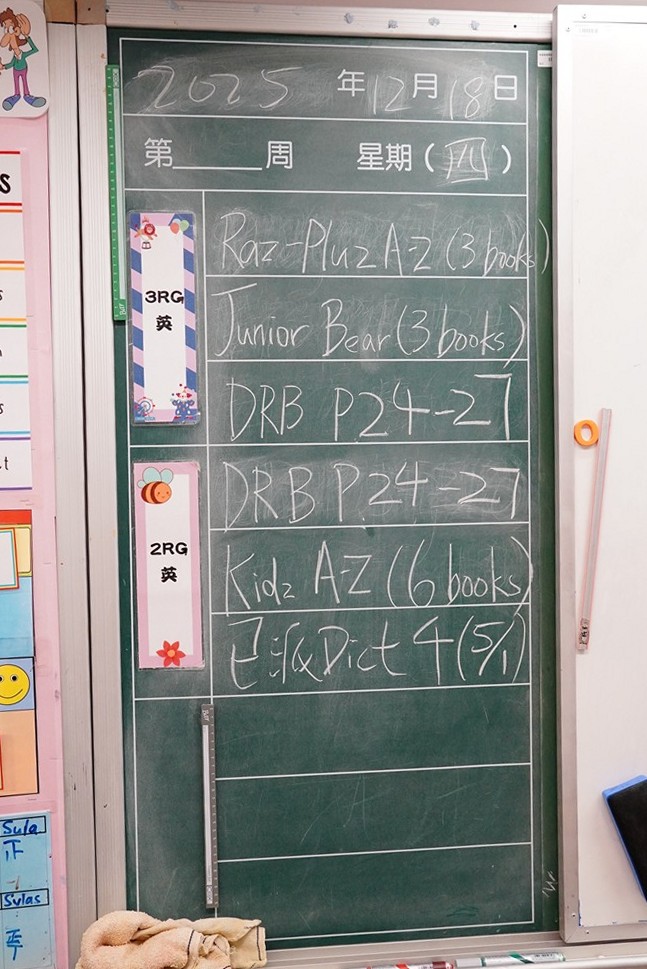 2025 年 12 月 18 日
第______周 星期 (四)
3RG
英
Raz-Pluz A-Z (3 books)
Junior Bear (3 books)
DRB P.24-27
2RG
英
DRB P.24-27
Kidz A-Z (6 books)
已派Dict 4 (5/1)
s
s
n
s
t
Sula
正
Svlas